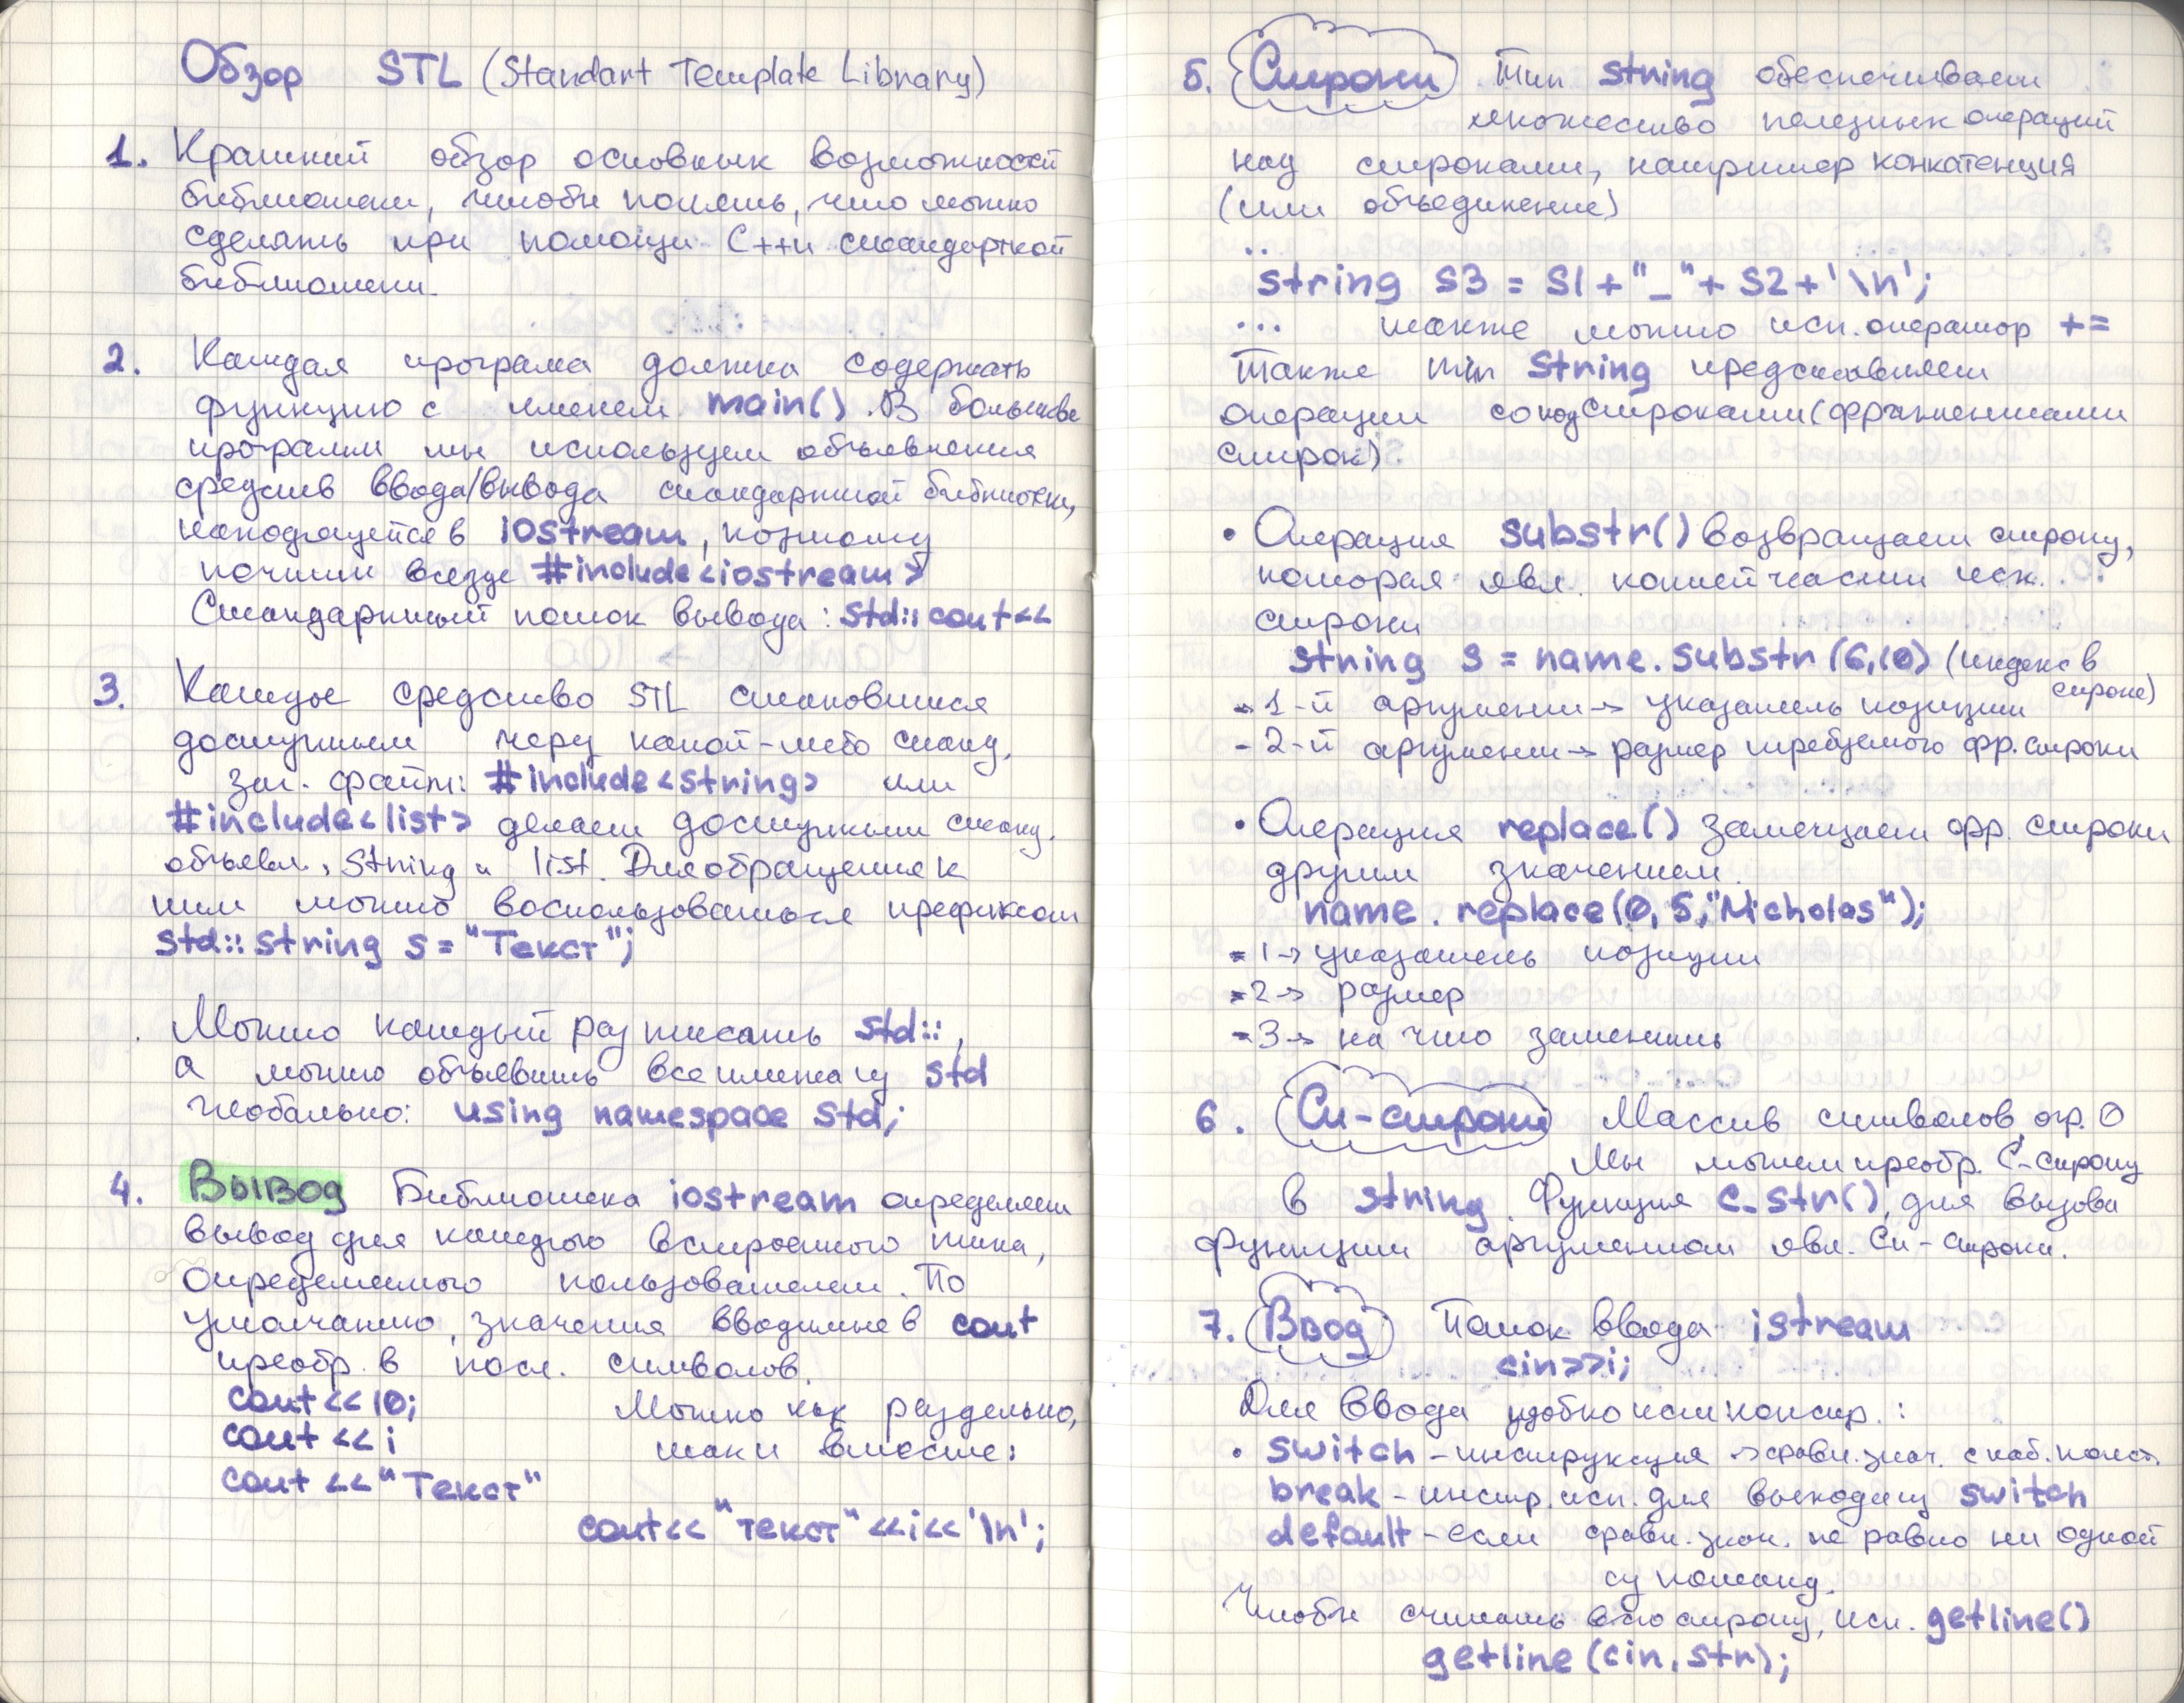 Обзор STL (Standart Template Library)
1. Краткий обзор основных возможностей
библиотеки, чтобы понять, что можно
сделать при помощи C++ и стандартной
библиотеки.
2. Каждая програма должна содержать
функцию с именем main(). В большинстве
программ мы используем объявления
средств ввода/вывода стандартной библиотеки,
находящейся в iostream, поэтому
почти везде #include<iostream>
Стандартный поток вывода: std::cout<<
3. Каждое средство STL становится
доступным через какой-либо станд.
заг. файл: #include<string> или
#include<list> делает доступными станд.
объявл. string и list. Для обращения к
ним можно воспользоваться префиксом
std::string s = "Текст";
Можно каждый раз писать std::,
а можно объявить все имена из std
глобально: using namespace std;
4. Вывод Библиотека iostream определяет
вывод для каждого встроенного типа,
определяемого пользователем. По
умолчанию, значения вводимые в cout
преобр. в посл. символов.
cout<<10;
cout<<i
cout<<"Текст"
Можно как раздельно,
так и вместе:
cout<<"текст"<<i<<'\n';
5. Строки Тип string обеспечивает
множество полезных операций
над строками, например конкатенция
(или объединение)
..
string s3 = s1+"_"+s2+'\n';
... также можно исп. оператор +=
Также тип String предоставляет
операции с подстроками (фрагментами
строк).
• Операция substr() возвращает строку,
которая явл. копией части исх.
строки
string s = name.substr(6,10) (индекс в
строке)
- 1-й аргумент → указатель позиции
- 2-й аргумент → размер требуемого фр. строки
• Операция replace() замещает фр. строки
другим значением.
name.replace(0,5,"Nicholas");
- 1→ указатель позиции
- 2→ размер
- 3→ на что заменить
6. Си-строки Массив символов, огр. 0
Мы можем преобр. С-строку
в string. Функция c_str(), для вызова
функции аргументом явл. Си-строки.
7. Ввод Поток ввода istream
cin>>i;
Для ввода удобно исп конструк.:
• switch - инструкция → сравн. знач. с наб. конст.
break - инстр. исп. для выхода из switch
default - если сравн. знач. не равно ни одной
из команд.
Чтобы считать всю строку, исп. getline()
getline(cin, str);